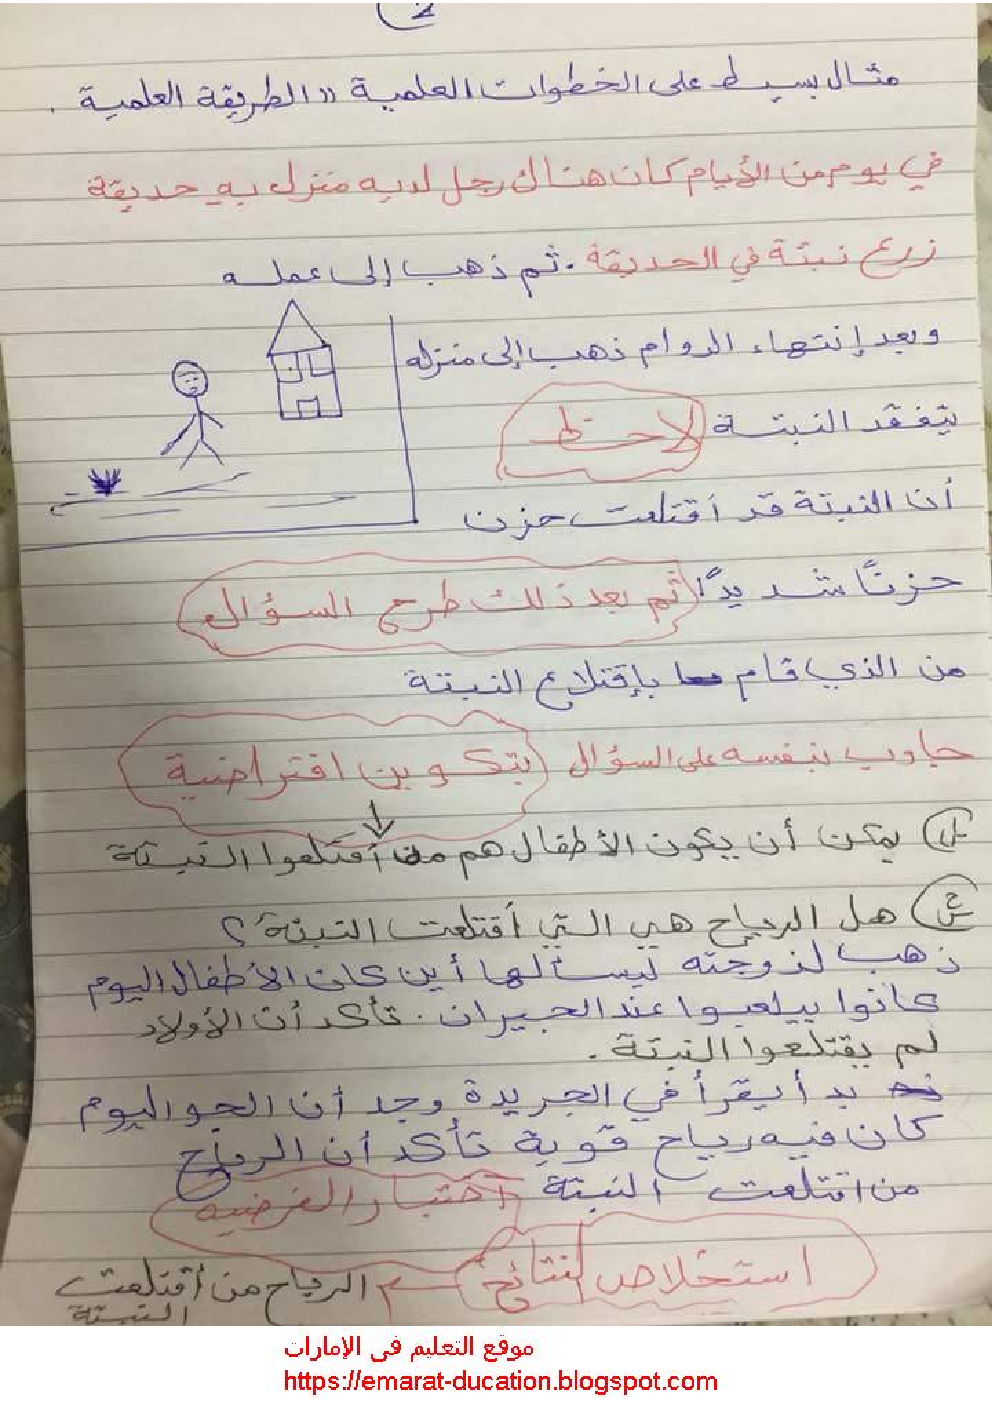 2
مثال بسيط على الخطوات العلمية "الطريقة العلمية .
في يوم من الأيام كان هناك رجل لديه منزل به حديقة
زرع نبتة في الحديقة . ثم ذهب إلى عمله
وبعد إنتهاء الدوام ذهب إلى منزله
يتفقد النبتة لاحظ
أن النبتة قد أقتلعت حزن
حزنًا شديدًا ثم بعد ذلك طرح السؤال
من الذي قام بإقتلاع النبتة
جاوب بنفسه على السؤال بتكوين افتراضية
يمكن أن يكون الأطفال هم من أقتلعوا النبتة
هل الرياح هي التي أقتلعت النبتة؟
ذهب لزوجته ليسألها أين كان الأطفال اليوم
كانوا بيلعبوا عند الجيران . تأكد أن الأولاد
لم يقتلعوا النبتة .
بدأ يقرأ في الجريدة وجد أن الجو اليوم
كان فيه رياح قوية تأكد أن الرياح
من اقتلعت النبتة أختبار الفرضية
استخلاص النتائج ← الرياح من أقتلعت
النبتة
موقع التعليم فى الإمارات
https://emarat-ducation.blogspot.com